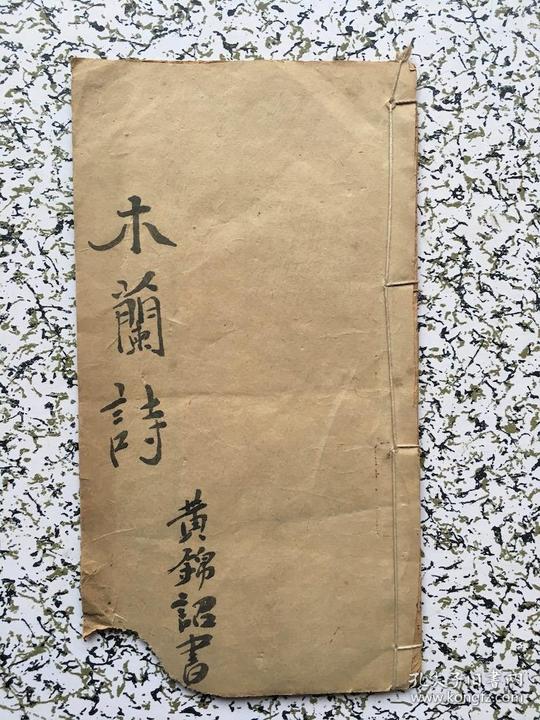 木蘭詩
黄錦詔書
孔夫子旧书网
www.kongfz.com